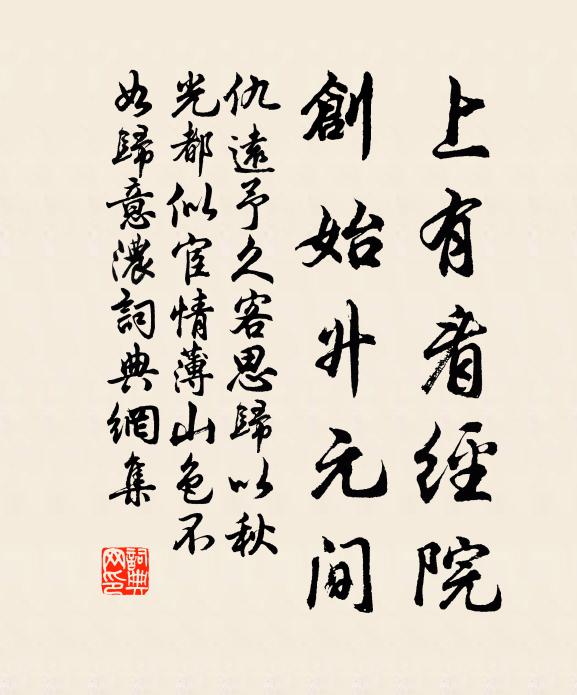 上有看經院
創始升元間
仇遠予久客思歸以秋
光都似宦情薄山色不
如歸意濃詞典網集
詞典
网印